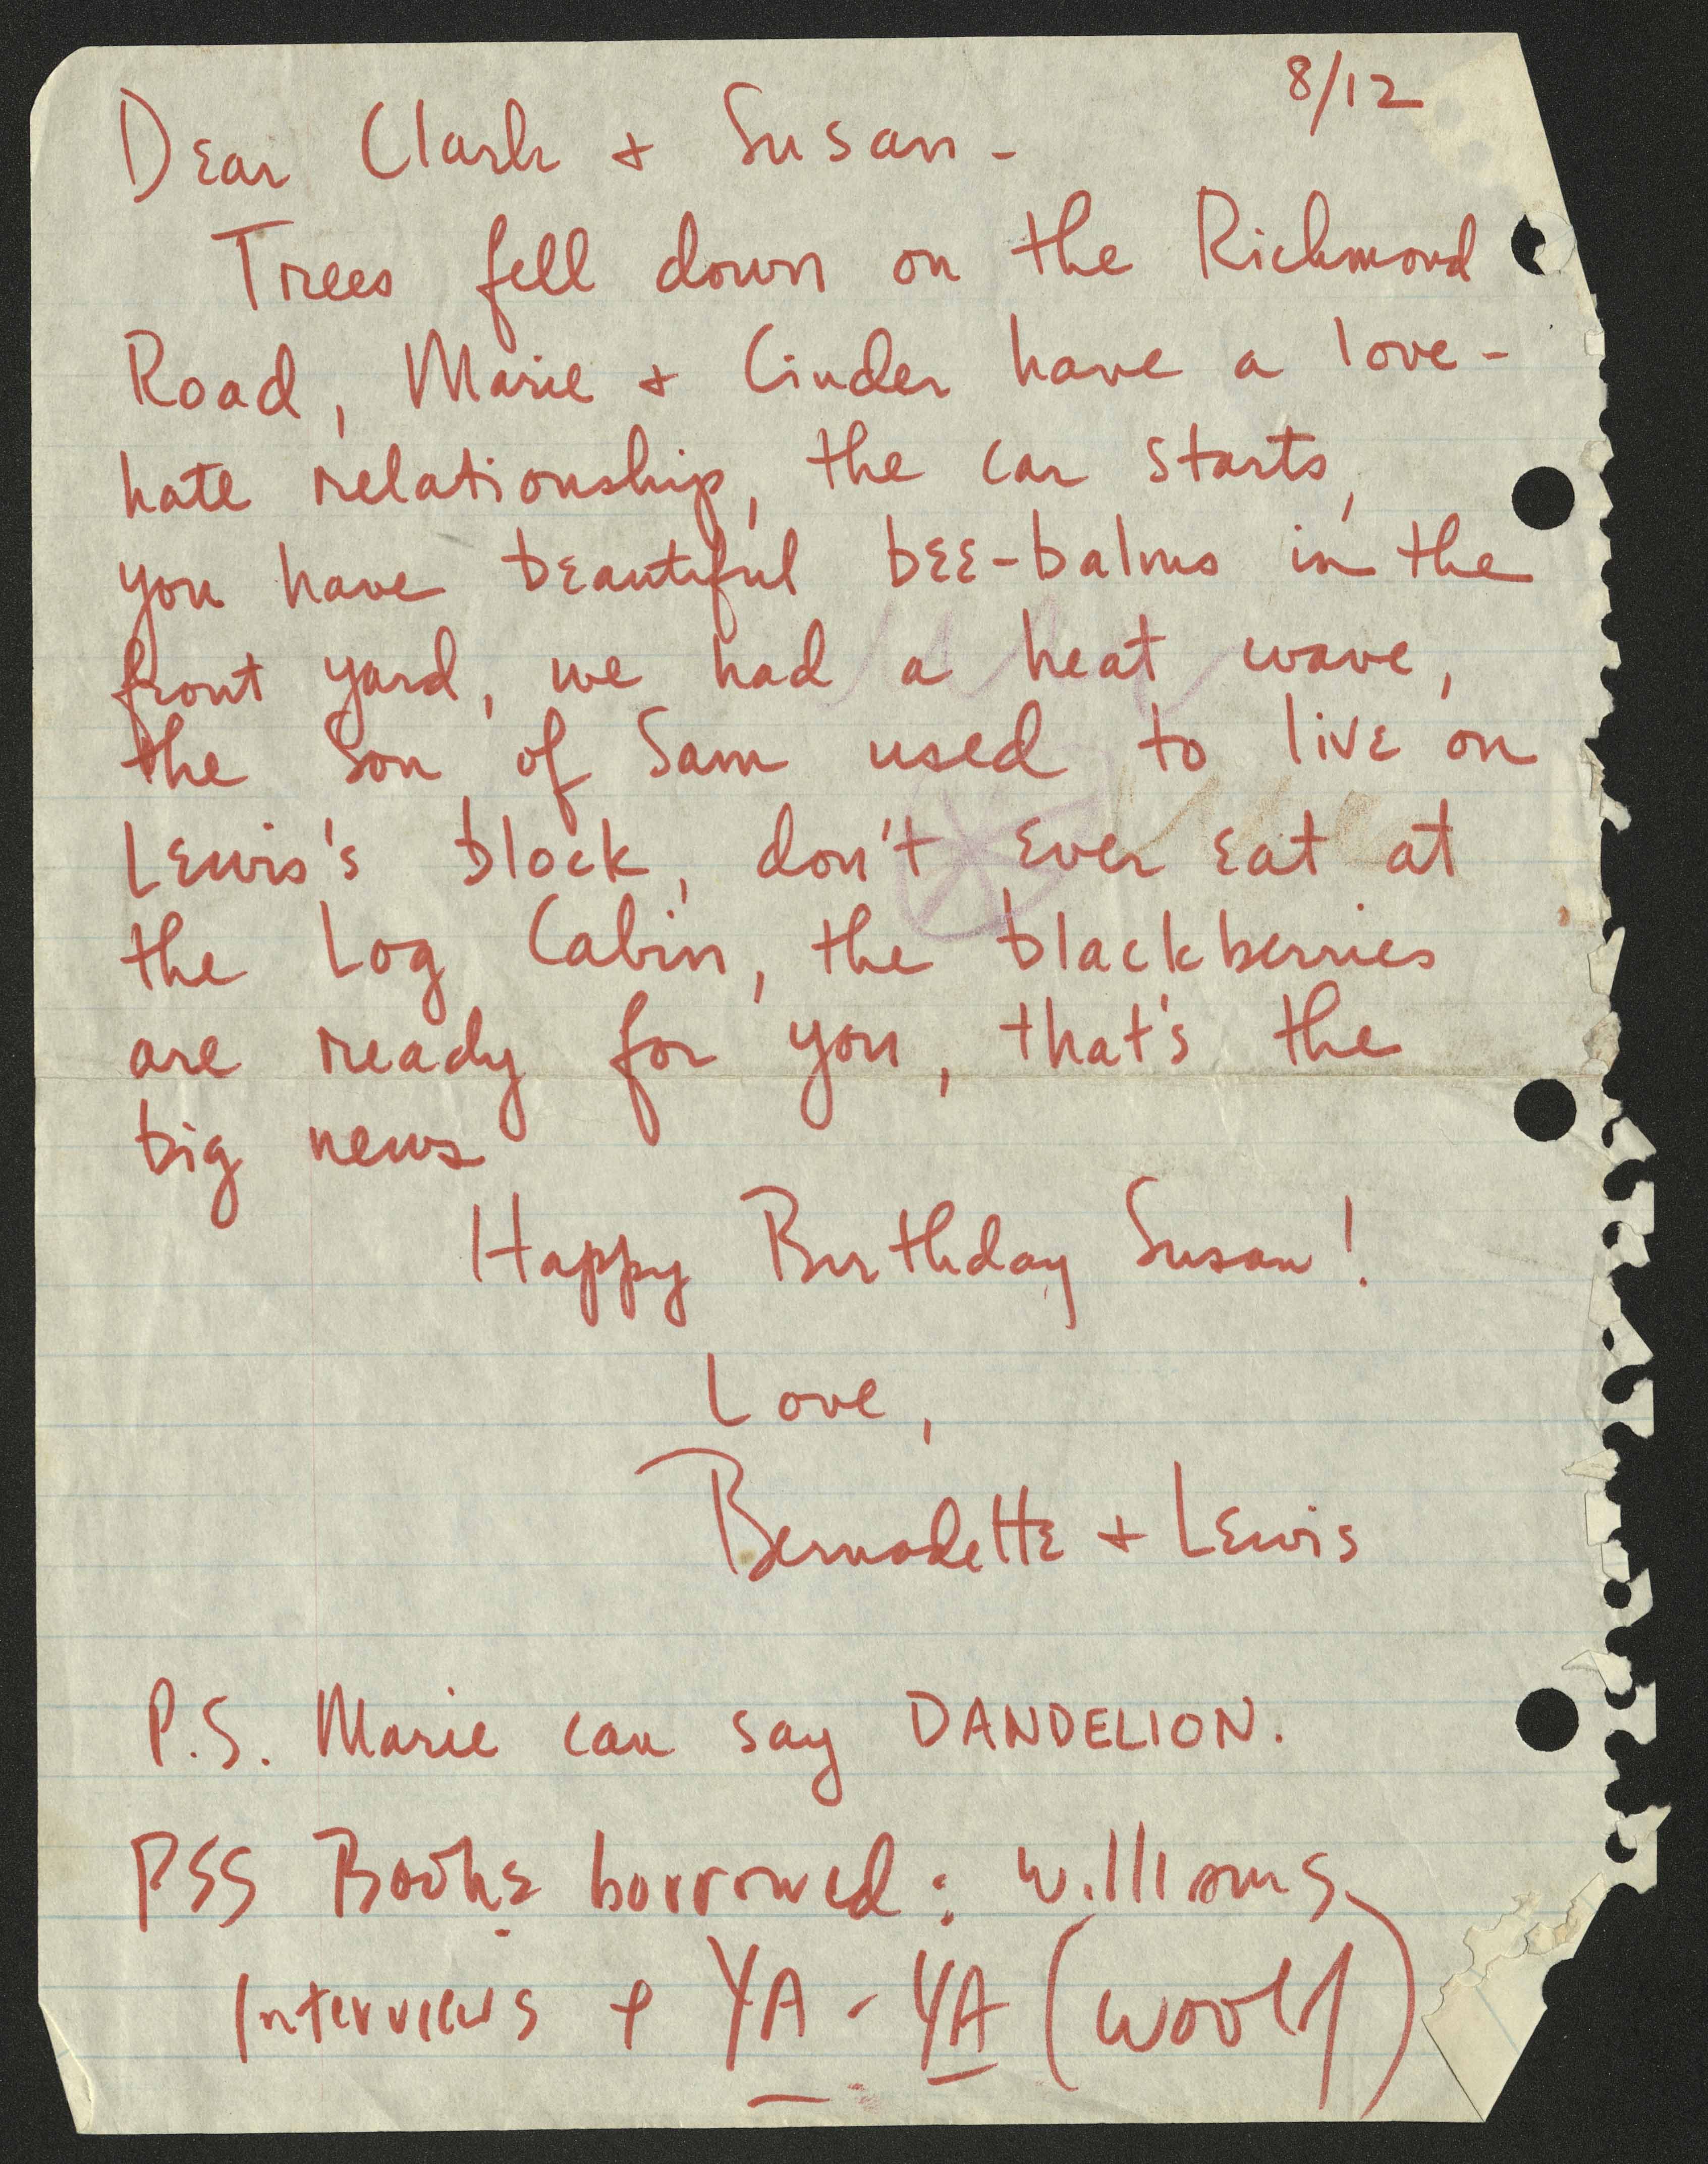 8/12
Dear Clark + Susan -
Trees fell down on the Richmond
Road, Marie + Cinder have a love-
hate relationship, the car starts,
you have beautiful bee-balms in the
front yard, we had a heat wave,
the Son of Sam used to live on
Lewis's block, don't ever eat at
the Log Cabin, the blackberries
are ready for you, that's the
big news
Happy Birthday Susan!
Love,
Bernadette + Lewis
P.S. Marie can say DANDELION.
PSS Books borrowed: Williams
Interviews + YA-YA (Woolf)